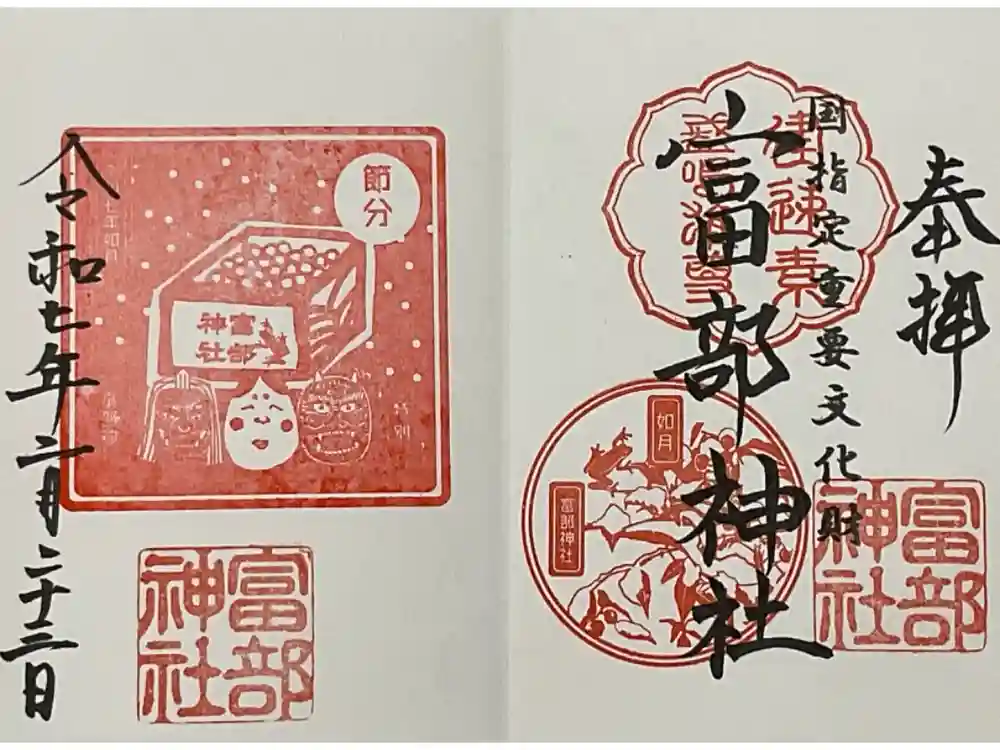 奉拝
国指定重要文化財
富部神社
如月
富部神社
富部
神社
節分
富部
神社
特別
令和七年二月二十三日
富部
神社